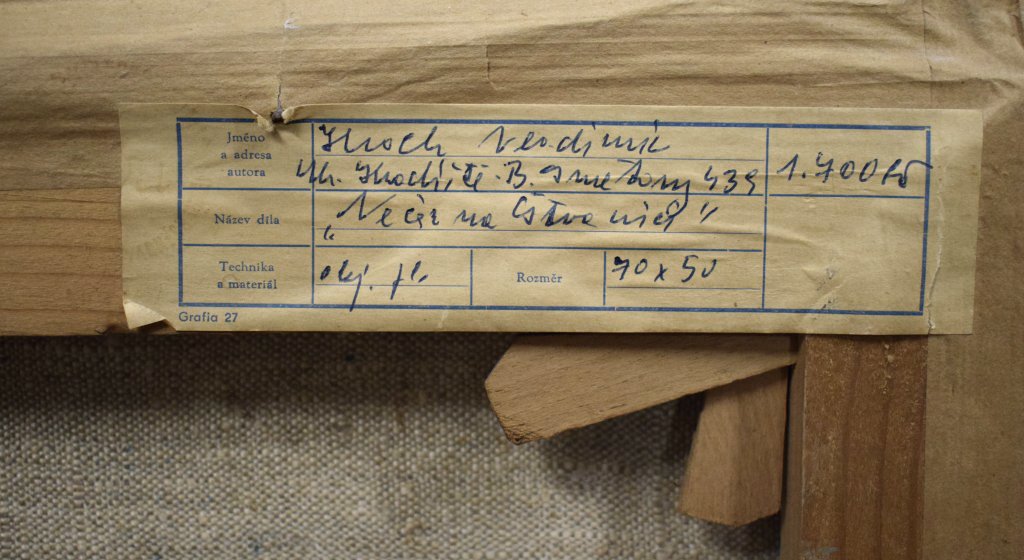 Jméno
a adresa
autora
Hroch Vladimír
Uh. Hradiště - B. Smetany 439
1.700 Kčs
Název díla
„Večer na
"
Technika
a materiál
olej. pl.
Rozměr
70 x 50
Grafia 27